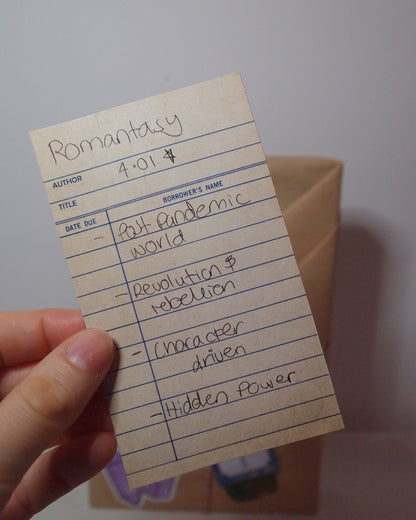 Romantasy
AUTHOR 4.01 ☆
TITLE
DATE DUE BORROWER'S NAME
- Post Pandemic
world
- Revolution &
rebellion
- Character
driven
- Hidden Power